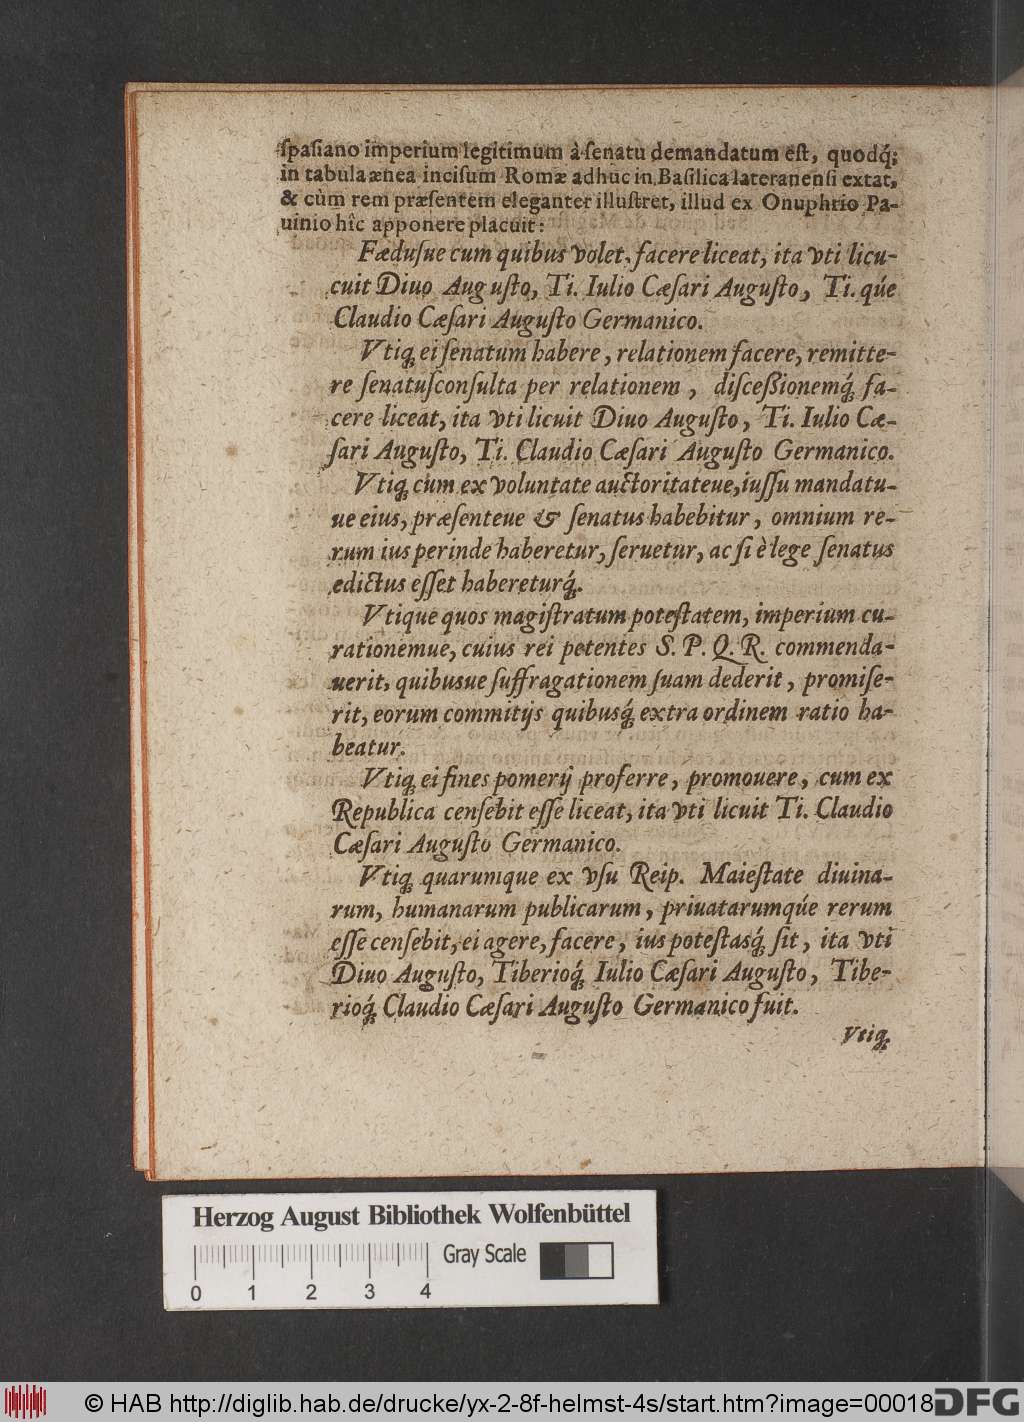 ſpaſiano imperium legitimum à ſenatu demandatum eſt, quodq́;
in tabula ænea inciſum Romæ adhuc in Baſilica lateranenſi extat,
& cùm rem præſentem eleganter illuſtret, illud ex Onuphrio Pa-
uinio hîc apponere placuit:
Fæduſue cum quibus volet, facere liceat, ita vti licu-
cuit Diuo Auguſto, Ti. Iulio Cæſari Auguſto, Ti. qúe
Claudio Cæſari Auguſto Germanico.
Vtiq; ei ſenatum habere, relationem facere, remitte-
re ſenatuſconſulta per relationem, diſceßionemq́; fa-
cere liceat, ita vti licuit Diuo Auguſto, Ti. Iulio Cæ-
ſari Auguſto, Ti. Claudio Cæſari Auguſto Germanico.
Vtiq; cum ex voluntate auctoritateue, iuſſu mandatu-
ue eius, præſenteue & ſenatus habebitur, omnium re-
rum ius perinde haberetur, ſeruetur, ac ſi è lege ſenatus
edictus eſſet habereturq́;.
Vtique quos magiſtratum poteſtatem, imperium cu-
rationemue, cuius rei petentes S. P. Q. R. commenda-
uerit, quibusue ſuffragationem ſuam dederit, promiſe-
rit, eorum commitijs quibusq́; extra ordinem ratio ha-
beatur.
Vtiq; ei fines pomerij proferre, promouere, cum ex
Republica cenſebit eſſe liceat, ita vti licuit Ti. Claudio
Cæſari Auguſto Germanico.
Vtiq; quarumque ex vſu Reip. Maieſtate diuina-
rum, humanarum publicarum, priuatarumqúe rerum
eſſe cenſebit, ei agere, facere, ius poteſtasq́; ſit, ita vti
Diuo Auguſto, Tiberioq́; Iulio Cæſari Auguſto, Tibe-
rioq́; Claudio Cæſari Auguſto Germanico fuit.
Vtiq;
Herzog August Bibliothek Wolfenbüttel
Gray Scale
0 1 2 3 4
© HAB http://diglib.hab.de/drucke/yx-2-8f-helmst-4s/start.htm?image=00018
DFG